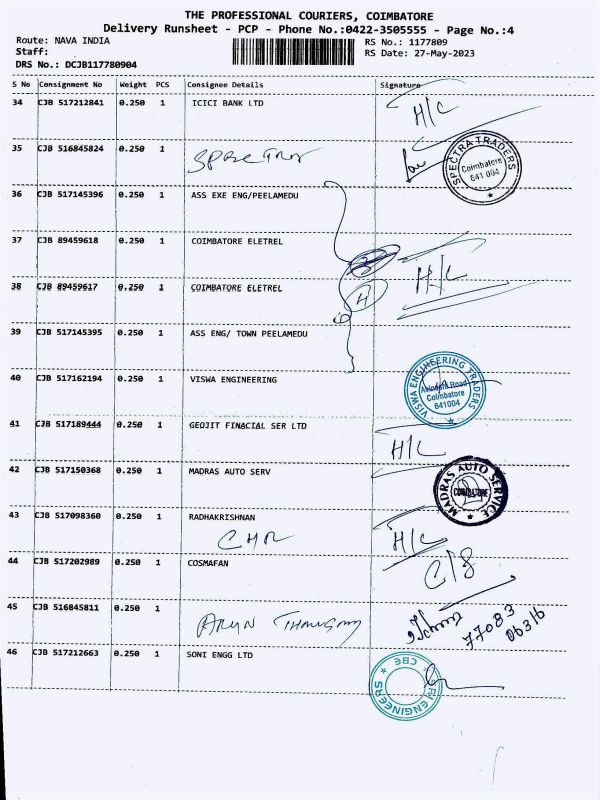 THE PROFESSIONAL COURIERS, COIMBATORE
Delivery Runsheet - PCP - Phone No.:0422-3505555 - Page No.:4
Route: NAVA INDIA RS No.: 1177809
Staff: RS Date: 27-May-2023
DRS No.: DCJB117780904
S No Consignment No Weight PCS Consignee Details Signature
34 CJB 517212841 0.250 1 ICICI BANK LTD H/C
35 CJB 516845824 0.250 1 SPECTRA
SPECTRA TRADERS Coimbatore 641 004 *
36 CJB 517145396 0.250 1 ASS EXE ENG/PEELAMEDU
37 CJB 89459618 0.250 1 COIMBATORE ELETREL
H/C
38 CJB 89459617 0.250 1 COIMBATORE ELETREL
39 CJB 517145395 0.250 1 ASS ENG/ TOWN PEELAMEDU
40 CJB 517162194 0.250 1 VISWA ENGINEERING
VISWA ENGINEERING TRADERS Avinashi Road Coimbatore 641004 *
41 CJB 517189444 0.250 1 GEOJIT FINACIAL SER LTD
H/C
42 CJB 517150368 0.250 1 MADRAS AUTO SERV
MADRAS AUTO SERVICE COIMBATORE *
43 CJB 517098360 0.250 1 RADHAKRISHNAN
H/C
44 CJB 517202989 0.250 1 COSMAFAN
C/S
45 CJB 516845811 0.250 1
ARUN
77083
06316
46 CJB 517212663 0.250 1 SONI ENGG LTD
ENGINEERS * CBE *